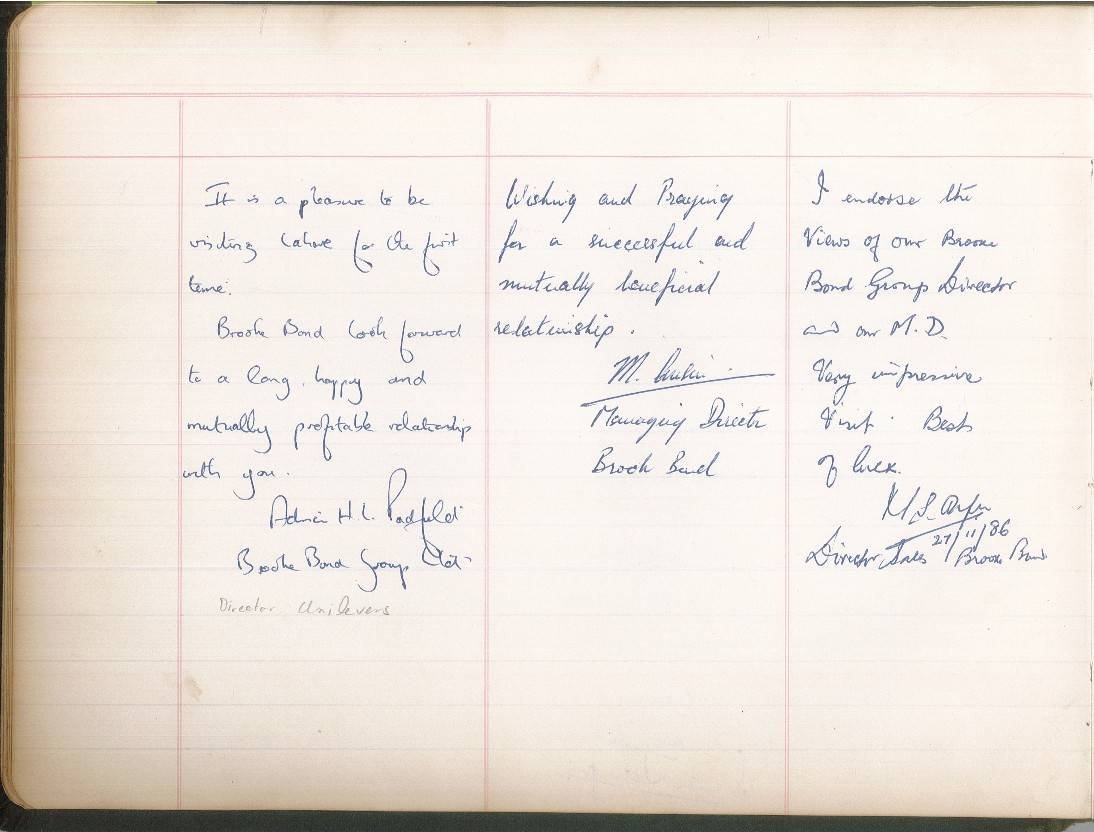 It is a pleasure to be
visiting Lahore for the first
time.
Brooke Bond look forward
to a long, happy and
mutually profitable relationship
with you.
Adrian H. L. Padfield
Brooke Bond Group
Director Unilevers
Wishing and Praying
for a successful and
mutually beneficial
relationship.
M.
Managing Director
Brook Bond
I endorse the
Views of our Brooke
Bond Group Director
and our M.D.
Very impressive
Visit. Best
of luck.
27/11/86
Director Sales Brooke Bond